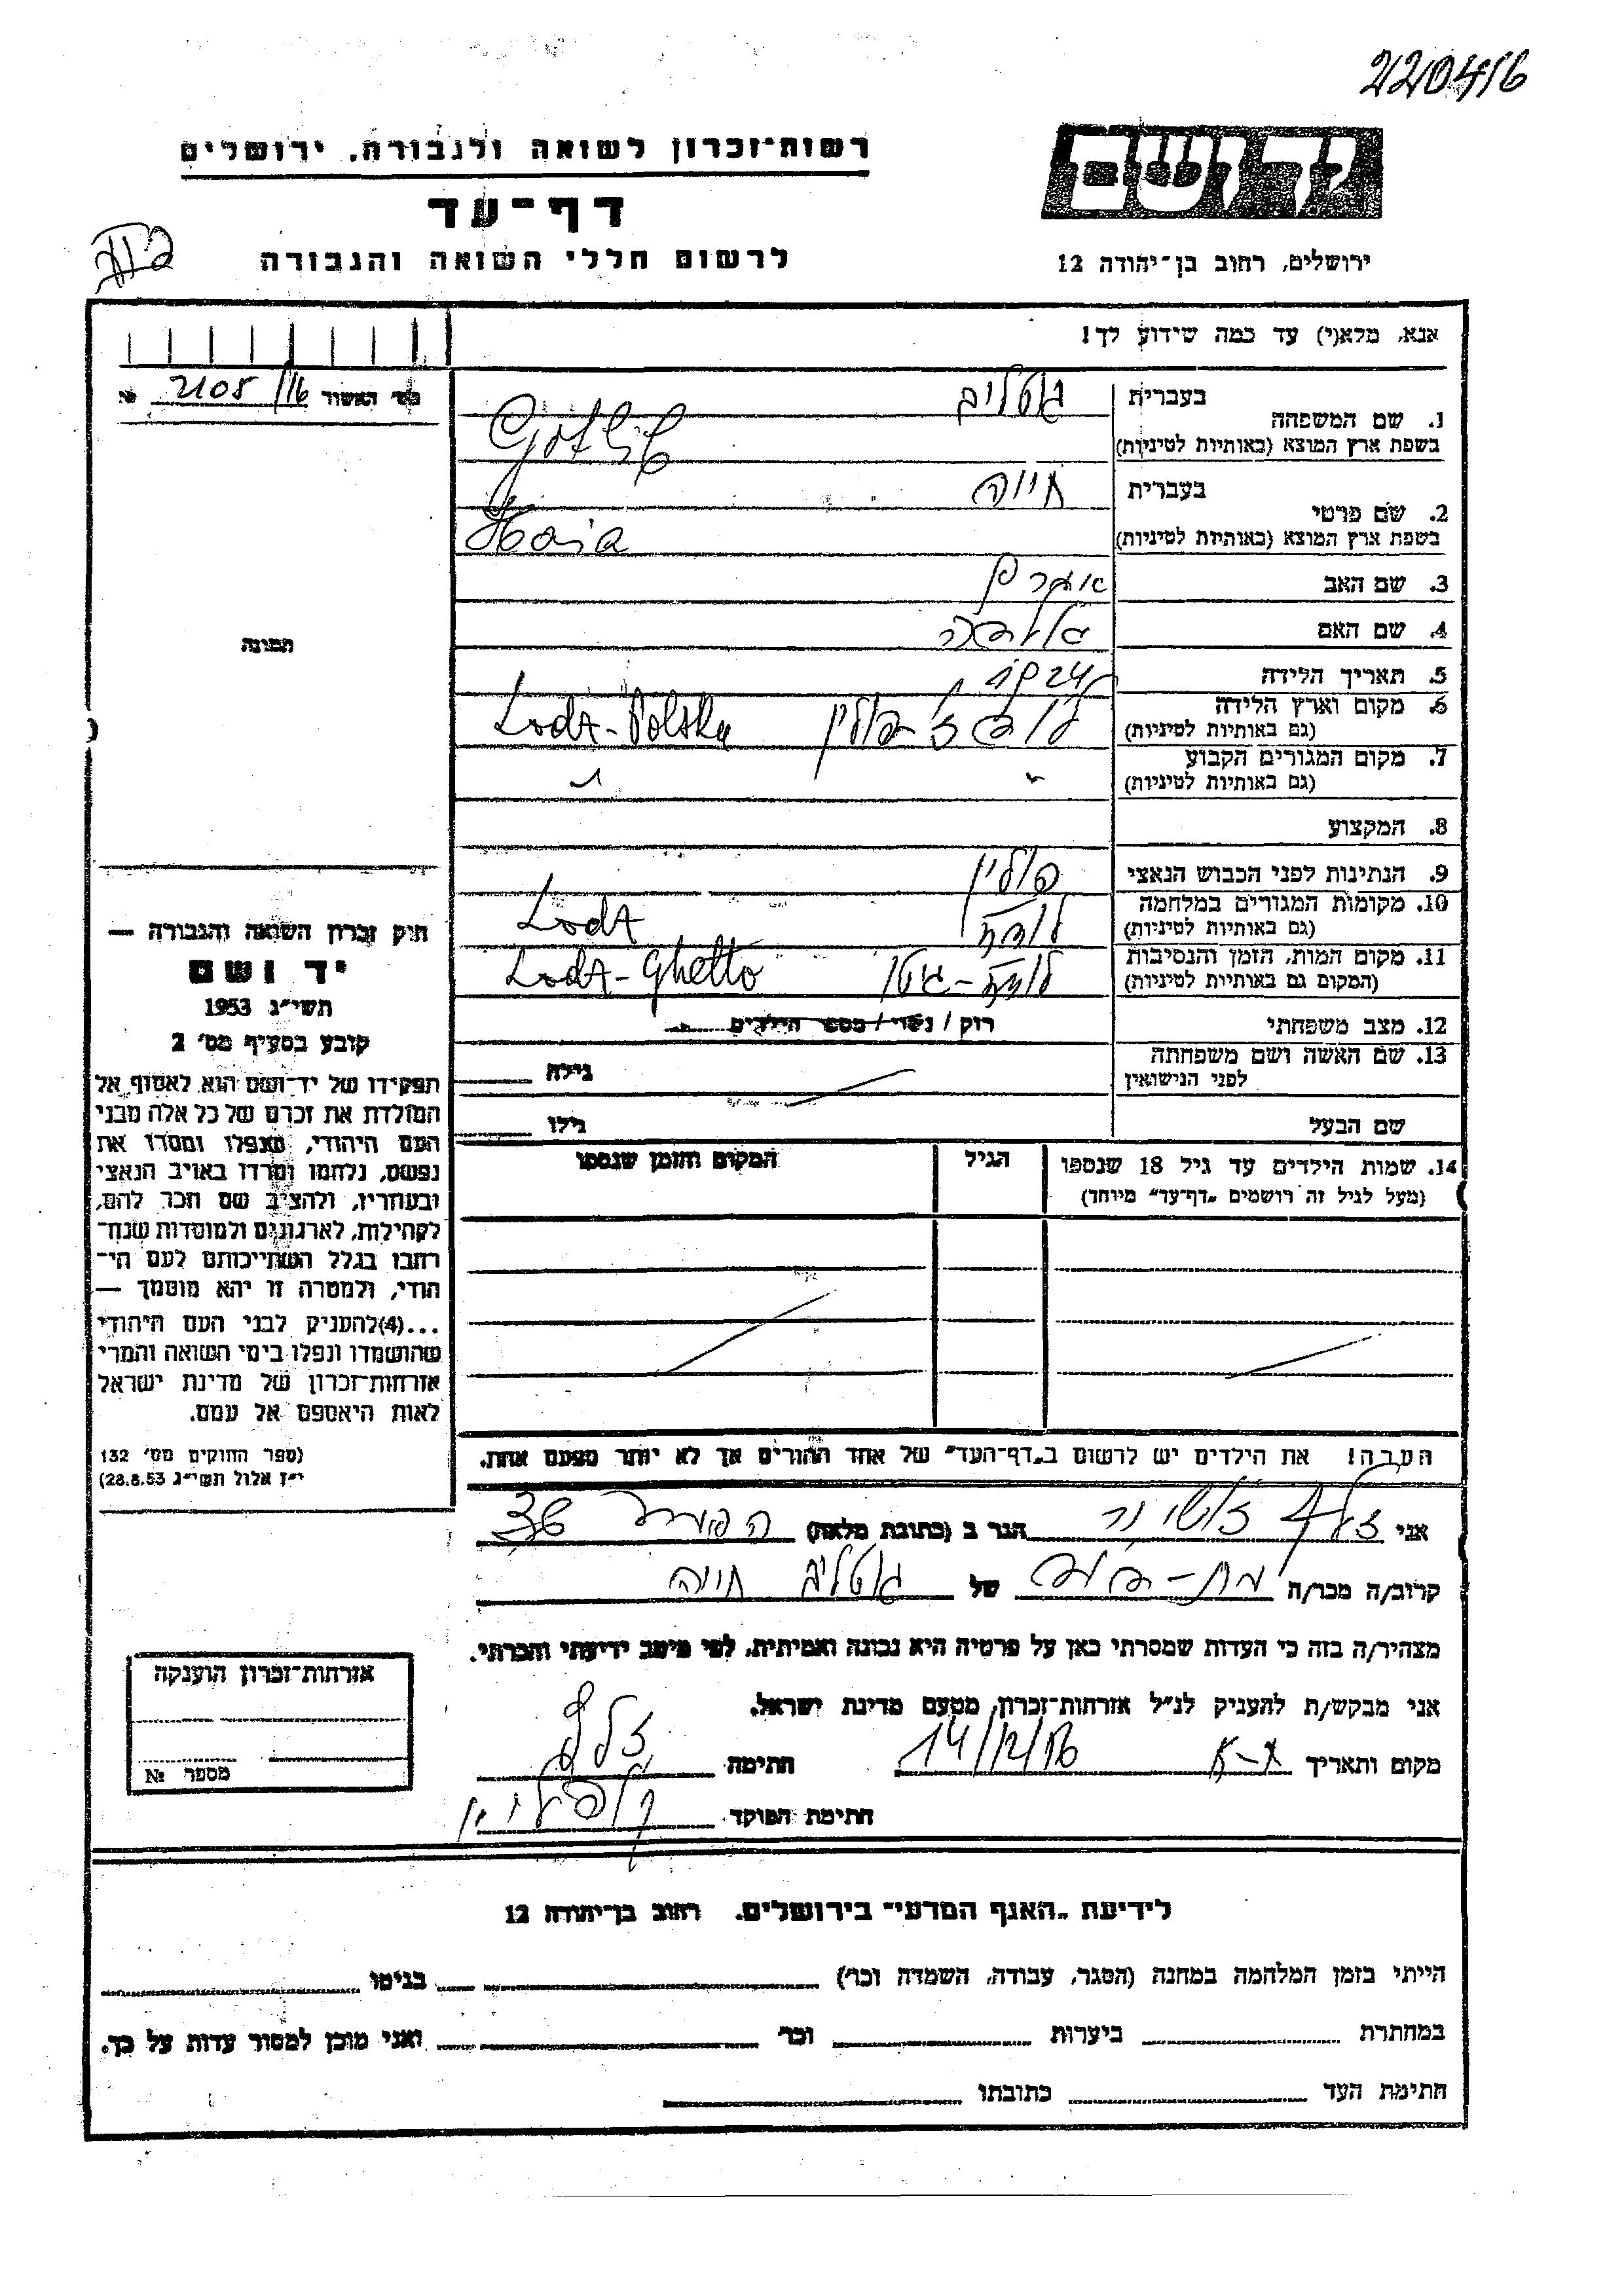 220416
רשות־זכרון לשואה ולגבורה, ירושלים
דף־עד
לרשום חללי השואה והגבורה
יד ושם
ירושלים, רחוב בן־יהודה 12
אנא, מלא(י) עד כמה שידוע לך!
מס׳ האשור 2105/16 №
תמונה
1. שם המשפחה
בעברית גוטליב
בשפת ארץ המוצא (באותיות לטיניות) Gotlib
2. שם פרטי
בעברית חייה
בשפת ארץ המוצא (באותיות לטיניות) Haia
3. שם האב
4. שם האם
5. תאריך הלידה 1924
6. מקום וארץ הלידה
(גם באותיות לטיניות) פולין Lodz-Polska
7. מקום המגורים הקבוע
(גם באותיות לטיניות) " "
8. המקצוע
9. הנתינות לפני הכבוש הנאצי פולין
10. מקומות המגורים במלחמה
(גם באותיות לטיניות) לודז Lodz
11. מקום המות, הזמן והנסיבות
(המקום גם באותיות לטיניות) לודז-גיטו Lodz-Ghetto
12. מצב משפחתי רוק / נשוי / מספר הילדים
13. שם האשה ושם משפחתה
לפני הנישואין גילה
שם הבעל גילו
14. שמות הילדים עד גיל 18 שנספו
(מעל לגיל זה רושמים „דף־עד" מיוחד)
הגיל
המקום והזמן שנספו
הערה! את הילדים יש לרשום ב„דף־העד" של אחד ההורים אך לא יותר מפעם אחת.
חוק זכרון השואה והגבורה —
יד ושם
תשי״ג 1953
קובע בסעיף מס׳ 2
תפקידו של יד־ושם הוא לאסוף אל
המולדת את זכרם של כל אלה מבני
העם היהודי, שנפלו ומסרו את
נפשם, נלחמו ומרדו באויב הנאצי
ובעוזריו, ולהציב שם וזכר להם,
לקהילות, לארגונים ולמוסדות שנח־
רבו בגלל השתייכותם לעם הי־
הודי, ולמטרה זו יהא מוסמך —
...(4) להעניק לבני העם היהודי
שהושמדו ונפלו בימי השואה והמרי
אזרחות־זכרון של מדינת ישראל
לאות היאספם אל עמם.
(ספר החוקים מס׳ 132
י״ז אלול תשי״ג 28.8.53)
אני הגר ב (כתובת מלאה)
קרוב/ה מכר/ה בת-דודה של גוטליב חייה
מצהיר/ה בזה כי העדות שמסרתי כאן על פרטיה היא נכונה ואמיתית, לפי מיטב ידיעתי והכרתי.
אני מבקש/ת להעניק לנ״ל אזרחות־זכרון, מטעם מדינת ישראל.
מקום ותאריך ת-א חתימה
חתימת הפוקד
אזרחות־זכרון הוענקה
מספר №
לידיעת „האגף המדעי" בירושלים. רחוב בן־יהודה 12
הייתי בזמן המלחמה במחנה (הסגר, עבודה, השמדה וכו׳) בגיטו
במחתרת ביערות וכו׳ ואני מוכן למסור עדות על כך.
חתימת העד כתובתו